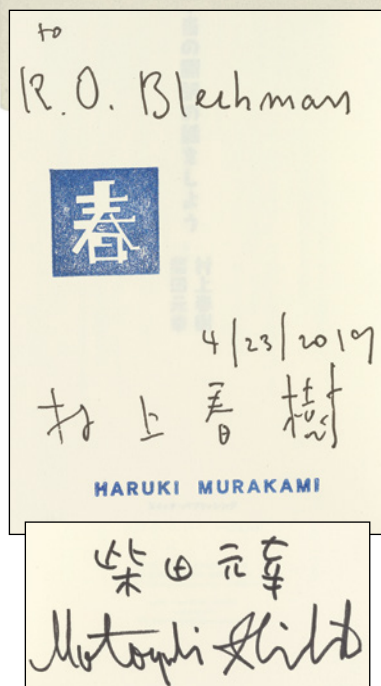 to
R.O. Blechman
春
4/23/2019
村上春樹
HARUKI MURAKAMI
柴田元幸
Motoyuki Shibata